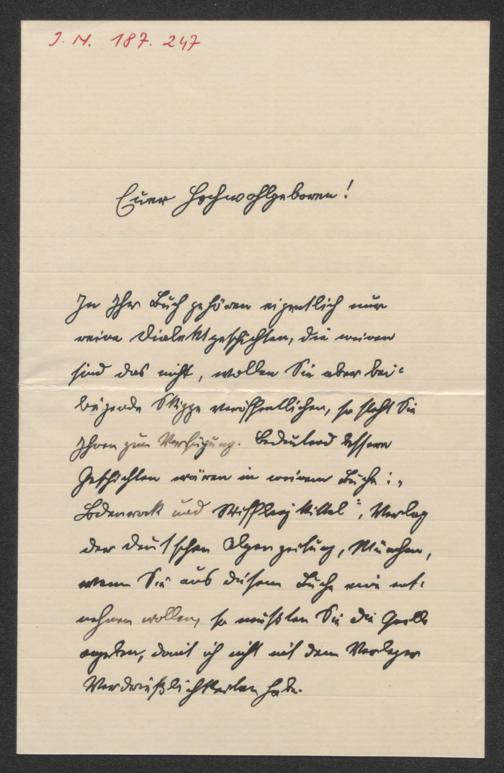 J. N. 187. 247
Euer Hochwohlgeboren!
In Ihr Buch gehören eigentlich nur
reine Dialektgeschichten, die meinen
sind das nicht, wollen Sie aber bei-
liegende Skizze veröffentlichen, so steht Sie
Ihnen zum Verfügung. Bedeutend bessere
Geschichten wären in meinem Buche: „
Lodenrock und Kittel", Verlag
der deutschen Alpenzeitung, München,
wenn Sie aus diesem Buche eine ent-
nehmen wollen, so müßten Sie die Quelle
angeben, damit ich nicht mit dem Verleger
Verdrießlichkeiten habe.